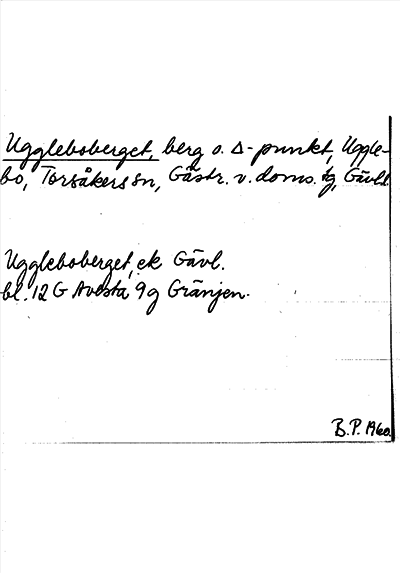 Uggleboberget, berg o. Δ-punkt, Uggle-
bo, Torsåkers sn, Gästr. v. doms. tg, Gävl.
Uggleboberget, ek Gävl.
bl. 12 G Avesta 9g Gränjen.
B.P. 1960.